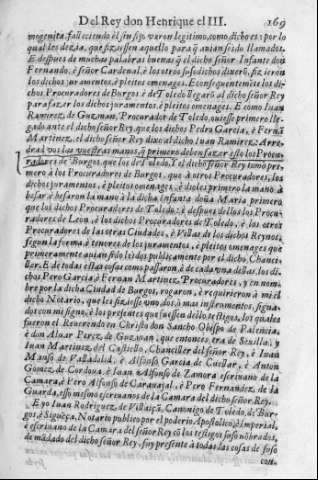 Del Rey don Henrique el III. 169
mogenita, falleciendo él sin fijo varon legitimo, como dicho es: por lo
qual les dezia, que fiziessen aquello para q̃ auian sido llamados.
E despues de muchas palabras buenas q̃ el dicho señor Infante don
Fernando, è señor Cardenal, è los otros susodichos dixerõ, fizieron
los dichos juramentos, è pleitos omenages. E consequentemẽte los di-
chos Procuradores de Burgos, è de Toledo al dicho señor Rey
para fazer los dichos juramentos, è pleitos omenages. E como Iuan
Ramirez de Guzman, Procurador de Toledo, ouiesse primero lle-
gado ante el dicho señor Rey, que los dichos Pedro Garcia, è Fernã
Martinez, el dicho señor Rey dixo al dicho Iuan Ramirez: Arre-
drad vos las vuestras manos, q̃ primero deben fazer esso los Procu-
radores de Burgos, que los de Toledo. Y el dicho señor Rey tomò pri-
mero à los Procuradores de Burgos, que à otros Procuradores, los
dichos juramentos, è pleitos omenages, è dioles primero la mano à
besar, è besaron la mano à la dicha Infanta doña Maria primero
que los dichos Procuradores de Toledo: è despues dellos los Procu-
radores de Leon, è los dichos Procuradores de Toledo, è los otros
Procuradores de las otras Ciudades, è Villas de los dichos Reynos,
segun la forma è tenores de los juramentos, è pleitos omenages que
primeramente auian sido leidos publicamente por el dicho Chance-
ller. E de todas estas cosas como passaron, è de cada vna dellas, los di-
chos Pero Garcia, è Fernan Martinez, Procuradores, y en nom-
bre por la dicha Ciudad de Burgos, rogaron, è requirieron à mi el
dicho Notario, que les fiziesse vno, dos, ò mas instrumentos, signa-
dos con mi signo, è los presentes que fuessen dello testigos, los quales
fueron el Reuerendo in Christo don Sancho Obispo de Palencia,
è don Aluar Perez, de Guzman, que entonces era de Seuilla, y
Iuan Martinez del Castiello, Chanciller del señor Rey, è Iuan
Manso de Valladolid, è Alfonso Garcia de Cuellar, è Anton
Gomez de Cordoua, è Iuan Alfonso de Zamora escriuano de la
Camara, è Pero Alfonso de Carauajal, è Pero Fernandez, de la
Guarda, esso mismo escriuanos de la Camara del dicho señor Rey.
E yo Iuan Rodriguez de Villaiçã, Canonigo de Toledo, de Bur-
gos, è Siguẽça, Notario publico por el poderio Apostolico, è Imperial,
è escriuano de la Camara del señor Rey cõ los testigos suso nõbrados,
de mãdado del dicho señor Rey, fuy presente à todas las cosas de suso